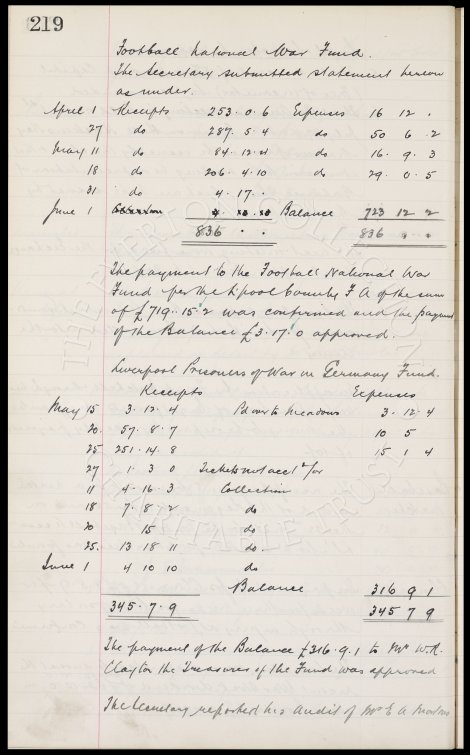 219
Football National War Fund.
The Secretary submitted statement hereon
as under.
April 1 Receipts 253. 0. 6 Expenses 16 12 .
27 do 287. 5. 4 do 50 6 . 2
May 11 do 84. 12. 4 do 16 . 9 . 3
18 do 206. 4. 10 do 29 . 0 . 5
31 do 4. 17. .
June 1 Balance 723 12 2
836 . . 836 . .
The payment to the Football National War
Fund per the L'pool County F A of the sum
of £719. 15. 2 was confirmed and the payment
of the Balance £3. 17. 0 approved.
Liverpool Prisoners of War in Germany Fund.
Receipts Expenses
May 15 3. 12. 4 to Meadows 3. 12. 4
20. 57. 8. 7 10 5
25 251. 14. 8 15 1 4
27 1. 3 0 Tickets not acct'd for
11 4. 16. 3 Collection
18 7. 8. 2 do
20 15 do
25. 13 18 11 do.
June 1 4 10 10 do
Balance 316 9 1
345. 7. 9 345 7 9
The payment of the Balance £316. 9. 1 to Mr W. R.
Clayton the Treasurer of the Fund was approved
The Secretary reported his audit of Mr E A
THE EVERTON COLLECTION
CHARITABLE TRUST